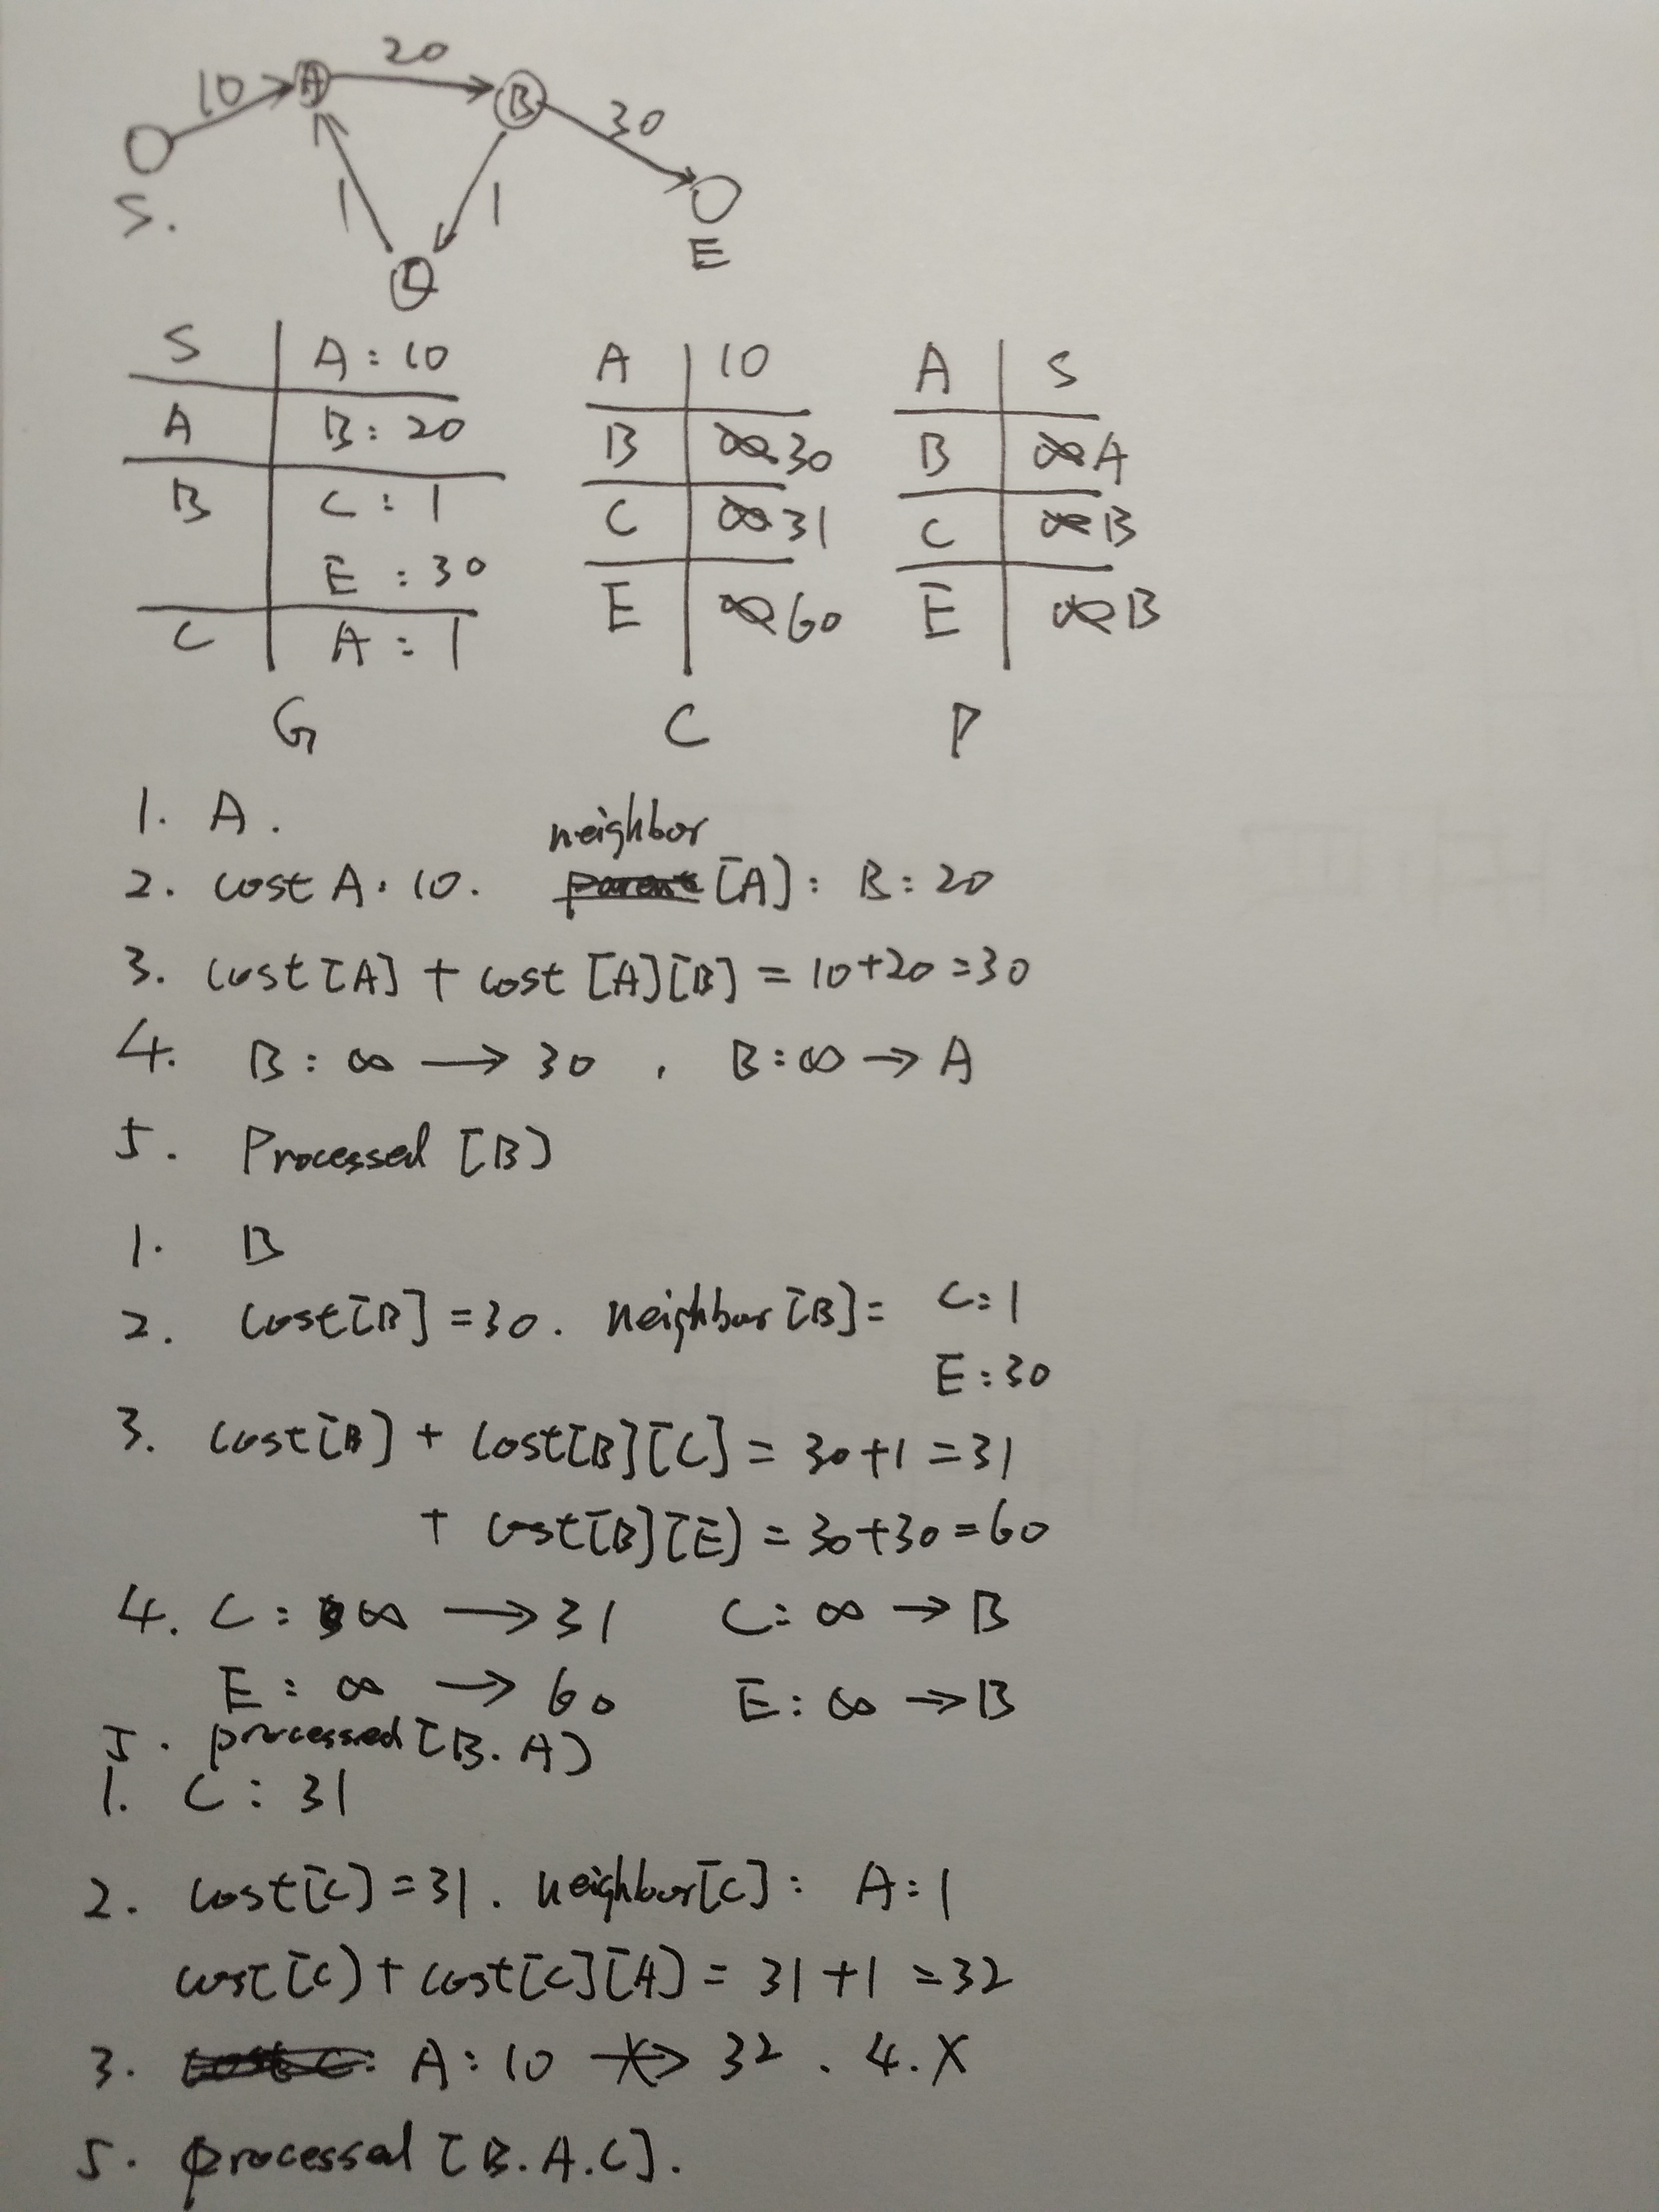 10 A 20 B 30
S. 1 1 E
C
S | A : 10
A | B : 20
B | C : 1
E : 30
C | A : 1
G
A | 10
B | ∞ 30
C | ∞ 31
E | ∞ 60
C
A | S
B | ∞ A
C | ∞ B
E | ∞ B
P
1. A.
neighbor
2. cost A : 10. parent [A] : B : 20
3. cost[A] + cost [A][B] = 10+20 =30
4. B : ∞ → 30 , B : ∞ → A
5. Processed [B]
1. B
2. cost[B] =30. neighbor[B]= C:1
E:30
3. cost[B] + cost[B][C] = 30+1 =31
+ cost[B][E] = 30+30=60
4. C : ∞ → 31 C: ∞ → B
E : ∞ → 60 E: ∞ → B
5. processed [B.A]
1. C : 31
2. cost[C] =31. neighbor[C] : A:1
cost[C] + cost[C][A] = 31+1 =32
3. A : 10 → 32 . 4. X
5. processed [B.A.C].